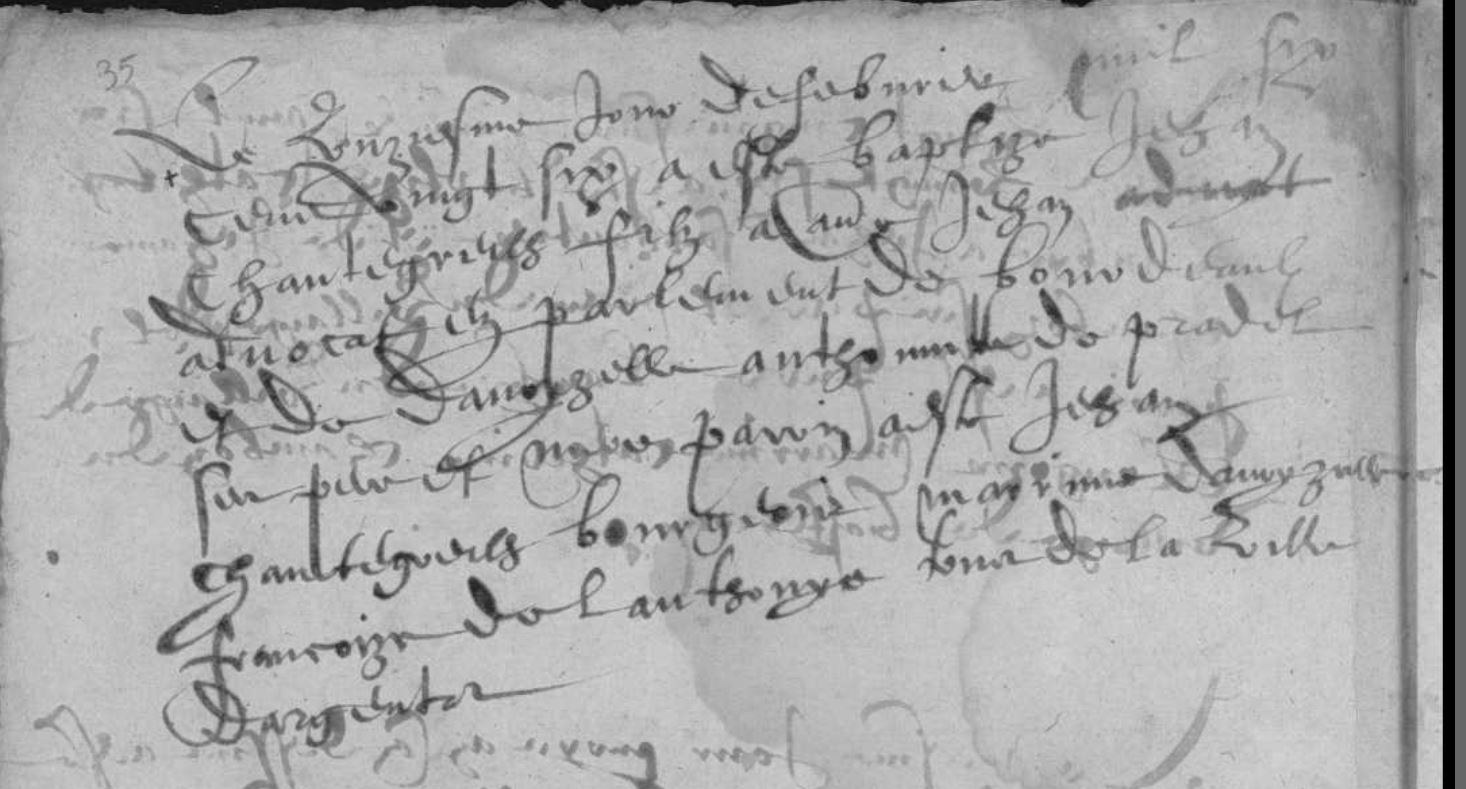 35
Le unziesme Jour de febvrier mil six
cent vingt six a esté baptizé Jehan
Chantegreilh filz a Jehan advocat
advocat en parlement de bourdeaulx
et de damoyzelle anthonnette de pradel
ses pere et mere parrin a esté Jehan
chantegreilh bourgeois marrine damoyzelle
francoize de lanthonye tous de la ville
dargentat